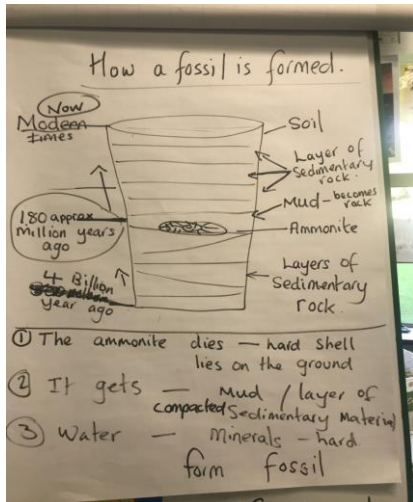 How a fossil is formed.
Now
Modern
times
180 approx
Million years
ago
4 Billion
year ago
Soil
Layer of
Sedimentary
rock.
Mud - becomes
rock
Ammonite
Layers of
Sedimentary
rock.
① The ammonite dies — hard shell
lies on the ground
② It gets — Mud / layer of
compacted Sedimentary Material
③ Water — Minerals - hard
form fossil